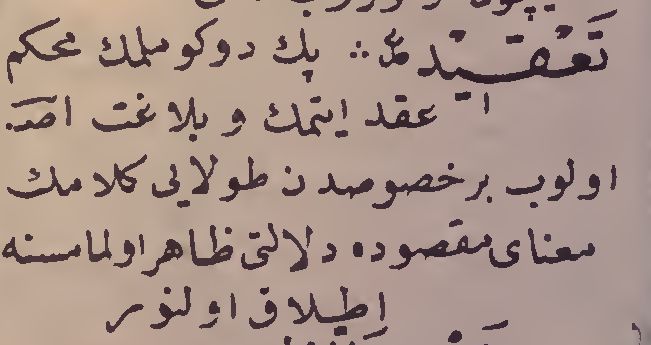 تَعْقِيدْ مص ∴ پك دوكوملمك محكم
عقد ايتمك و بلاغت اصـ.
اولوب برخصوصدن طولايى كلامك
معناى مقصوده دلالتى ظاهر اولمامسنه
اطلاق اولنور